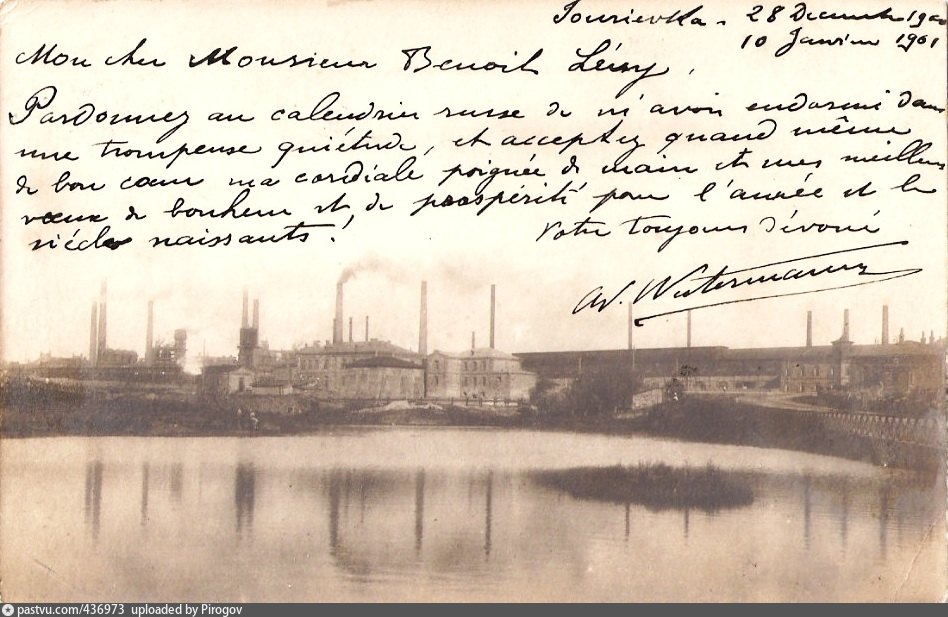 Sourievka - 28 Decembre 1900
10 Janvier 1901
Mon cher Monsieur Benoit Lévy,
Pardonnez au calendrier russe de m'avoir endormi dans
une trompeuse quiétude, et acceptez quand même
de bon cœur ma cordiale poignée de main et mes meilleurs
vœux de bonheur et de prospérité pour l'année et le
siècle naissants!
Votre toujours dévoué
pastvu.com/436973 uploaded by Pirogov